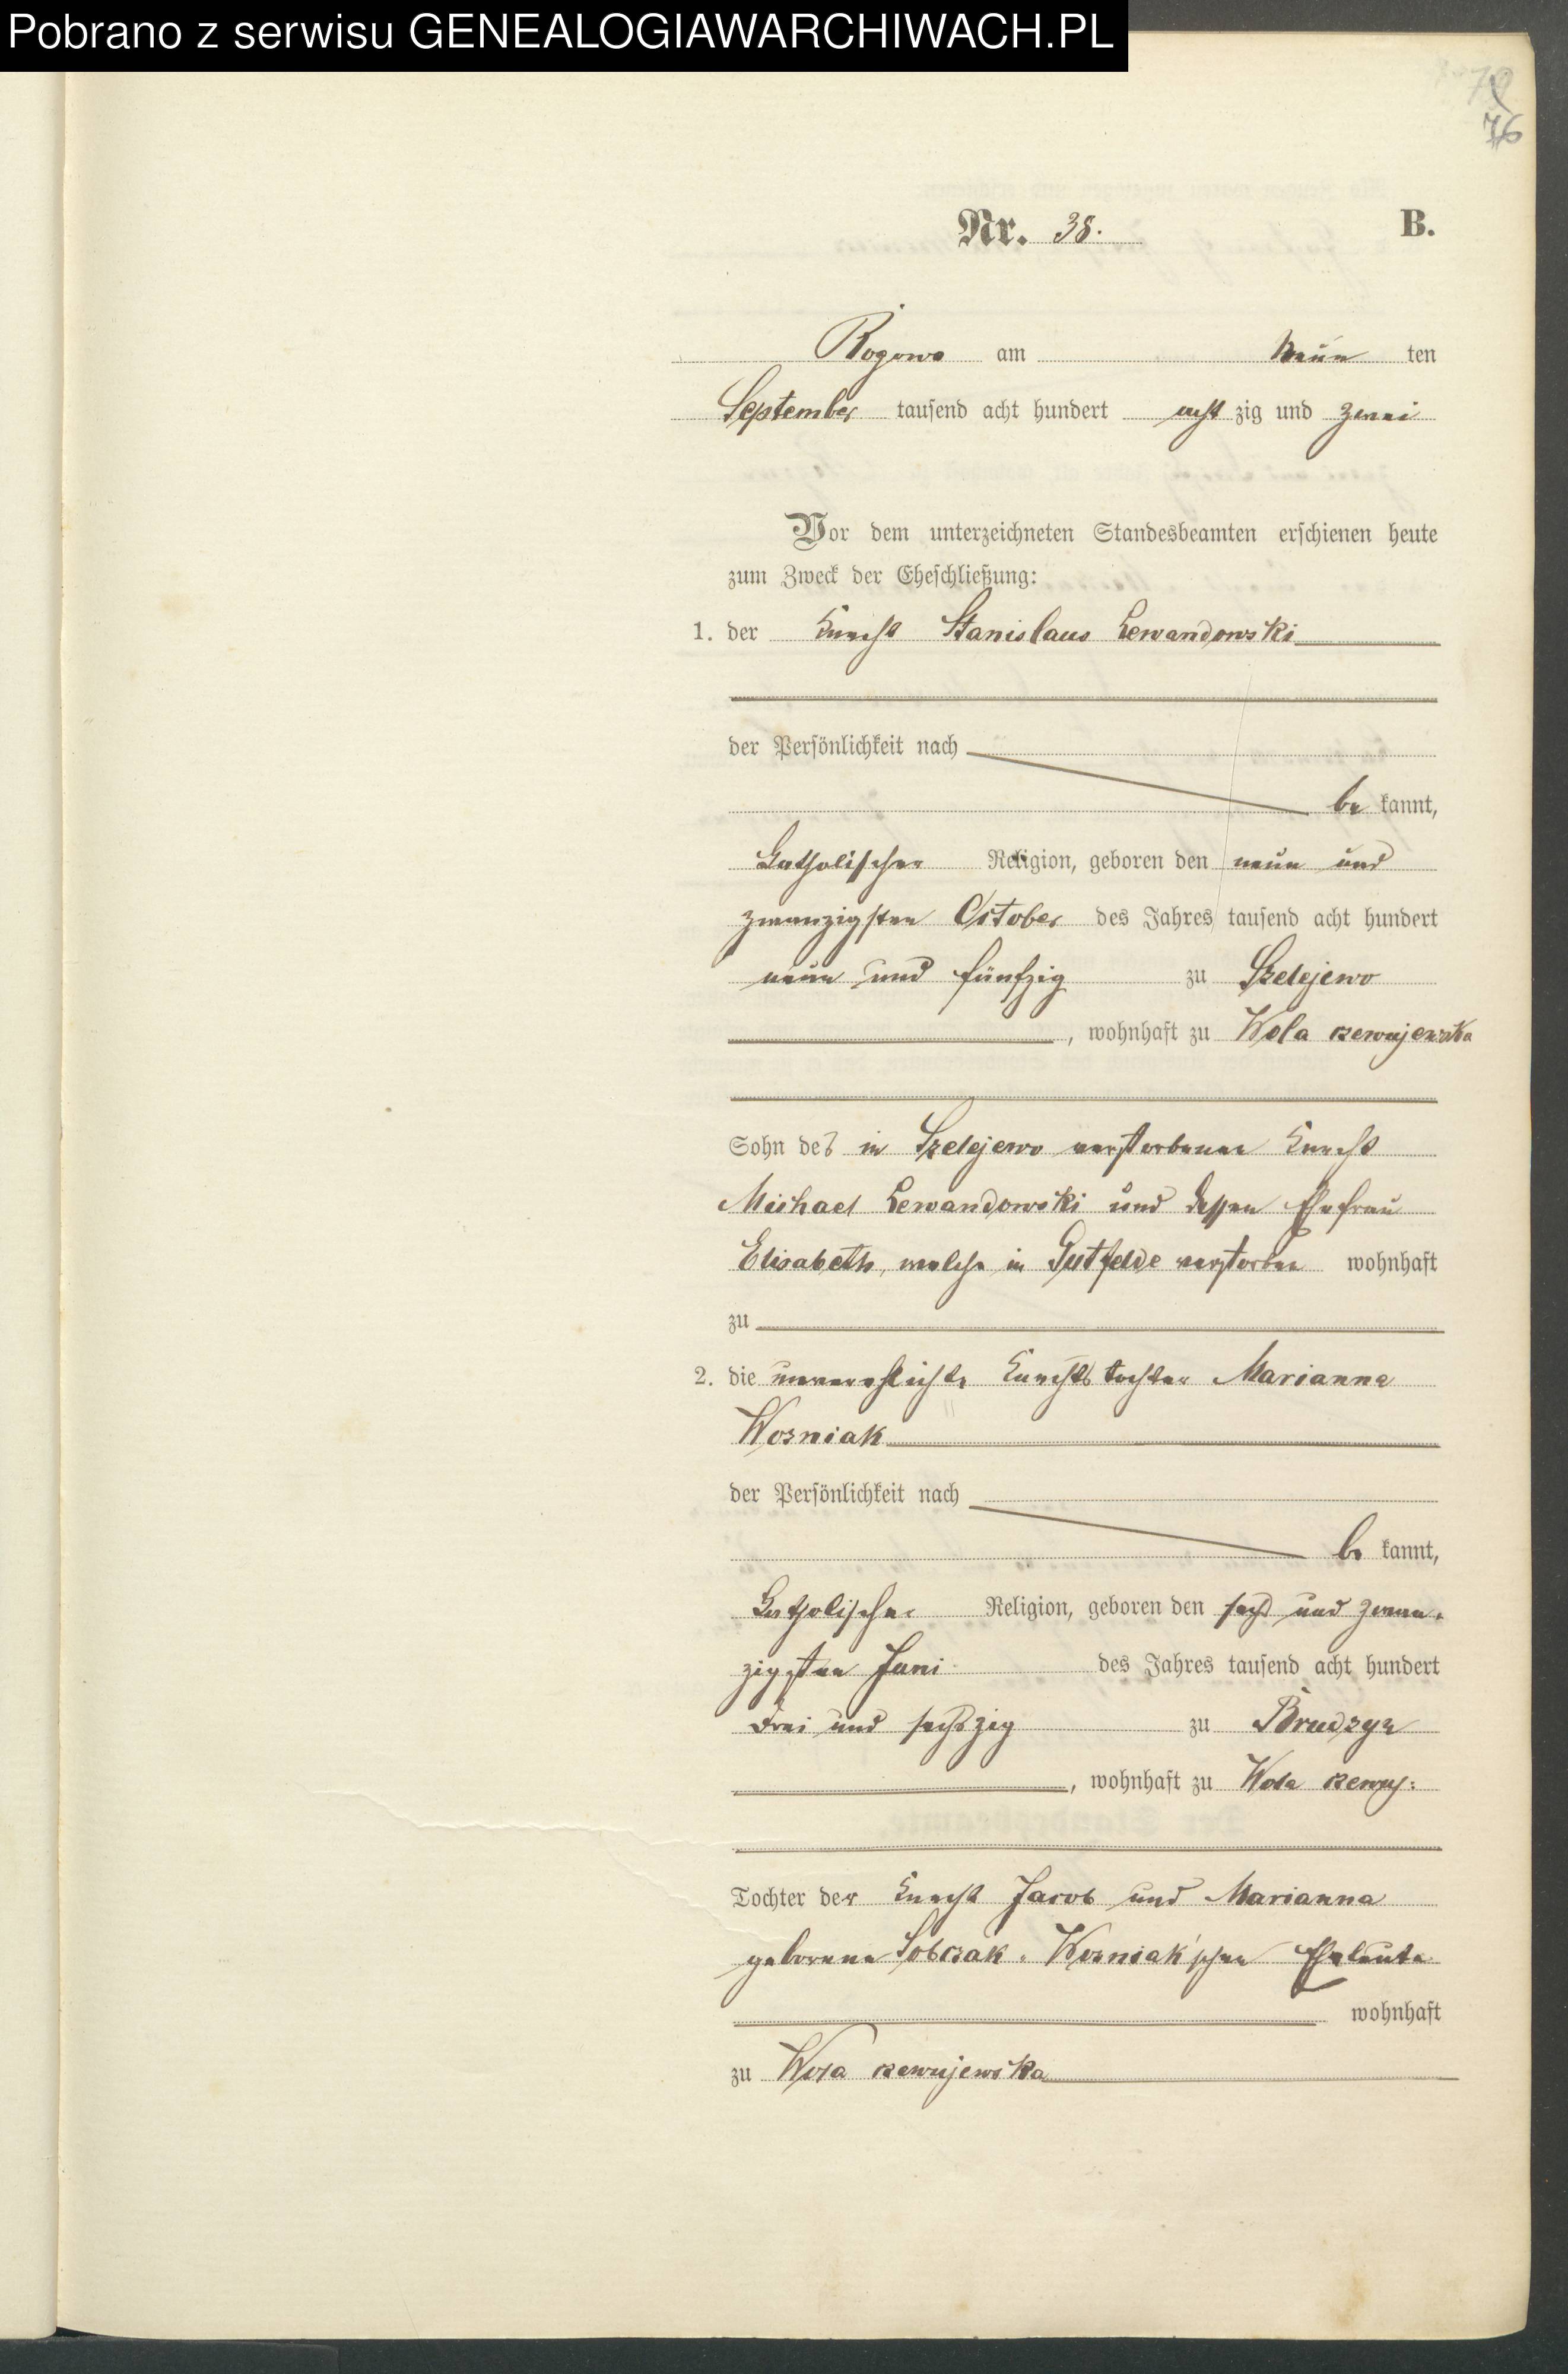 Pobrano z serwisu GENEALOGIAWARCHIWACH.PL
76
Nr. 38. B.
Rogowo am Neun ten
September tausend acht hundert acht zig und zwei
Vor dem unterzeichneten Standesbeamten erschienen heute
zum Zweck der Eheschließung:
1. der Knecht Stanislaus Lewandowski
der Persönlichkeit nach
be kannt,
Catholischer Religion, geboren den neun und
zwanzigsten October des Jahres tausend acht hundert
neun und fünfzig zu Szelejewo
, wohnhaft zu Wola czewujewska
Sohn des in Szelejewo verstorbenen Knecht
Michael Lewandowski und dessen Ehefrau
Elisabeth, welche in Gutfelde verstorben wohnhaft
zu
2. die unverehelichte Knechtstochter Marianna
Wozniak
der Persönlichkeit nach
be kannt,
Catholischer Religion, geboren den sechs und zwan-
zigsten Juni des Jahres tausend acht hundert
drei und sechszig zu Brudzyn
, wohnhaft zu Wola czewuj:
Tochter der Knecht Jacob und Marianna
geborene Sobczak-Wozniak'schen Eheleute
wohnhaft
zu Wola czewujewska